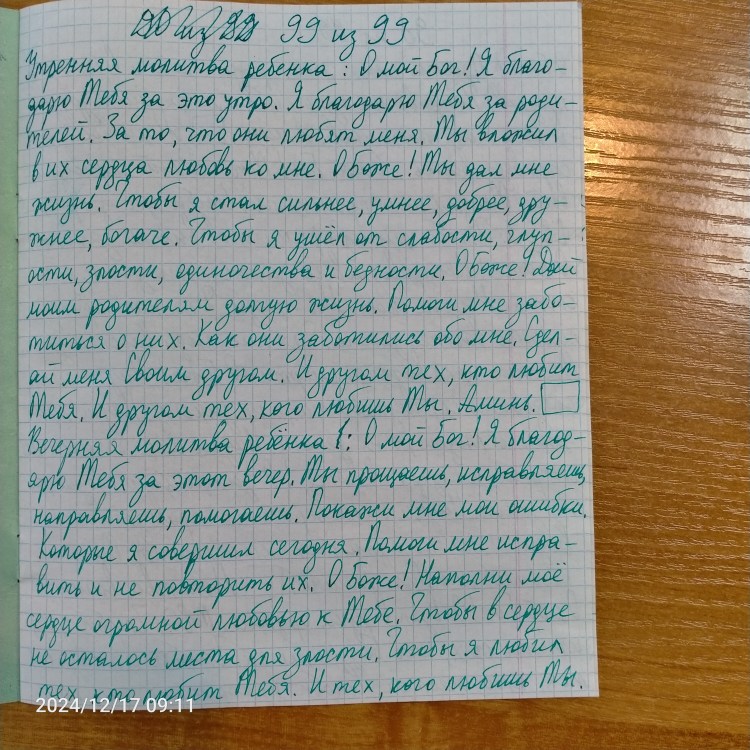 99 из 99
Утренняя молитва ребенка: О мой Бог! Я благо-
дарю Тебя за это утро. Я благодарю Тебя за роди-
телей. За то, что они любят меня. Ты вложил
в их сердца любовь ко мне. О Боже! Ты дал мне
жизнь. Чтобы я стал сильнее, умнее, добрее, дру-
жнее, богаче. Чтобы я ушёл от слабости, глуп-
ости, злости, одиночества и бедности. О Боже! Дай
моим родителям долгую жизнь. Помоги мне забо-
титься о них. Как они заботились обо мне. Сдел-
ай меня Своим другом. И другом тех, кто любит
Тебя. И другом тех, кого любишь Ты. Аминь.
Вечерняя молитва ребёнка: О мой Бог! Я благод-
арю Тебя за этот вечер. Ты прощаешь, исправляешь,
направляешь, помогаешь. Покажи мне мои ошибки.
Которые я совершил сегодня. Помоги мне испра-
вить и не повторить их. О Боже! Наполни моё
сердце огромной любовью к Тебе. Чтобы в сердце
не осталось места для злости. Чтобы я любил
тех, кто любит Тебя. И тех, кого любишь Ты.
2024/12/17 09:11